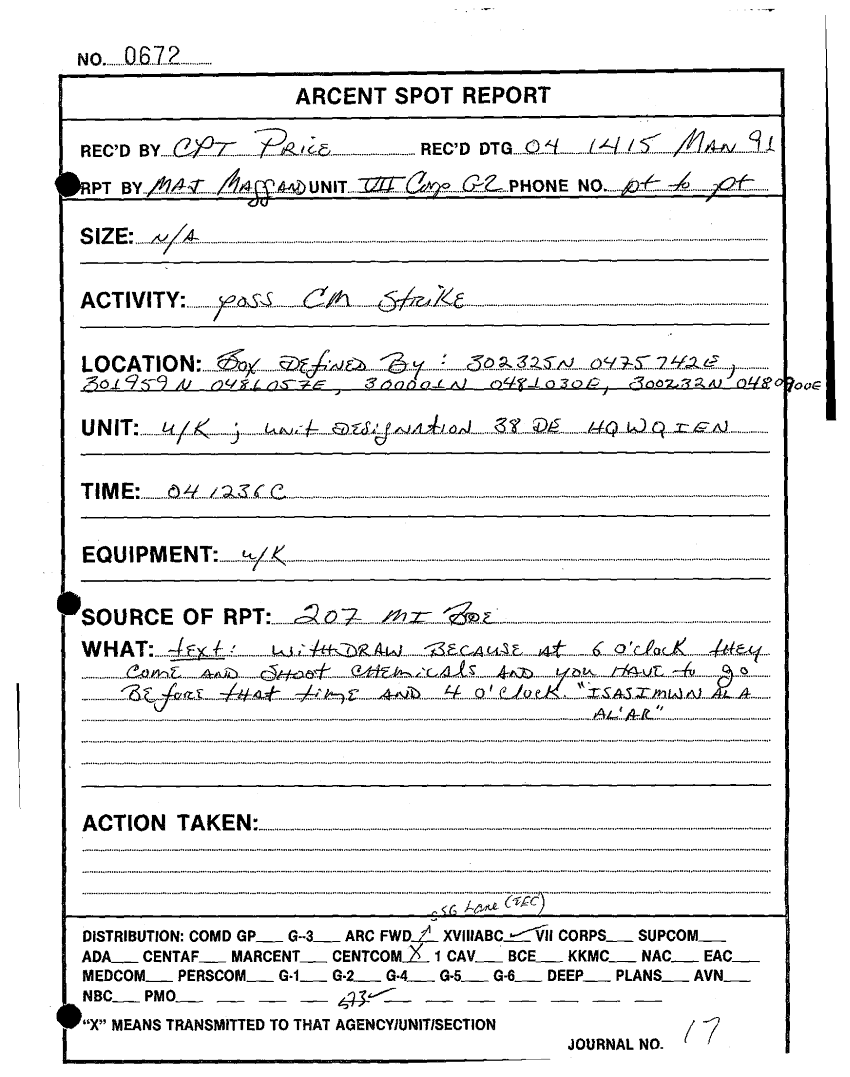 NO. 0672
ARCENT SPOT REPORT
REC'D BY CPT PRICE REC'D DTG 04 1415 MAR 91
RPT BY MAJ UNIT VII Corps G2 PHONE NO. pt to pt
SIZE: N/A
ACTIVITY: poss CM STRIKE
LOCATION: Box DEfiNED By : 302325N 0475742E,
301959N 0481057E, 300001N 0481030E, 300232N 0480900E
UNIT: U/K ; unit DESignAtion 38 DE HQWQIEN
TIME: 041236C
EQUIPMENT: U/K
SOURCE OF RPT: 207 MI BDE
WHAT: tExt: WitHDRAW BECAUSE At 6 o'clock tHEy
COME AND SHOOT CHEMicAlS AND you HAVE to go
BEforE tHAt timE AND 4 O'Clock. "ISASIMWN AL A
AL'AR"
ACTION TAKEN:
SSG Lane (IEC)
DISTRIBUTION: COMD GP___ G--3___ ARC FWD___ XVIIIABC ✓ VII CORPS___ SUPCOM___
ADA___ CENTAF___ MARCENT___ CENTCOM X 1 CAV___ BCE___ KKMC___ NAC___ EAC___
MEDCOM___ PERSCOM___ G-1___ G-2___ G-4___ G-5___ G-6___ DEEP___ PLANS___ AVN___
NBC___ PMO___
"X" MEANS TRANSMITTED TO THAT AGENCY/UNIT/SECTION
JOURNAL NO. 17